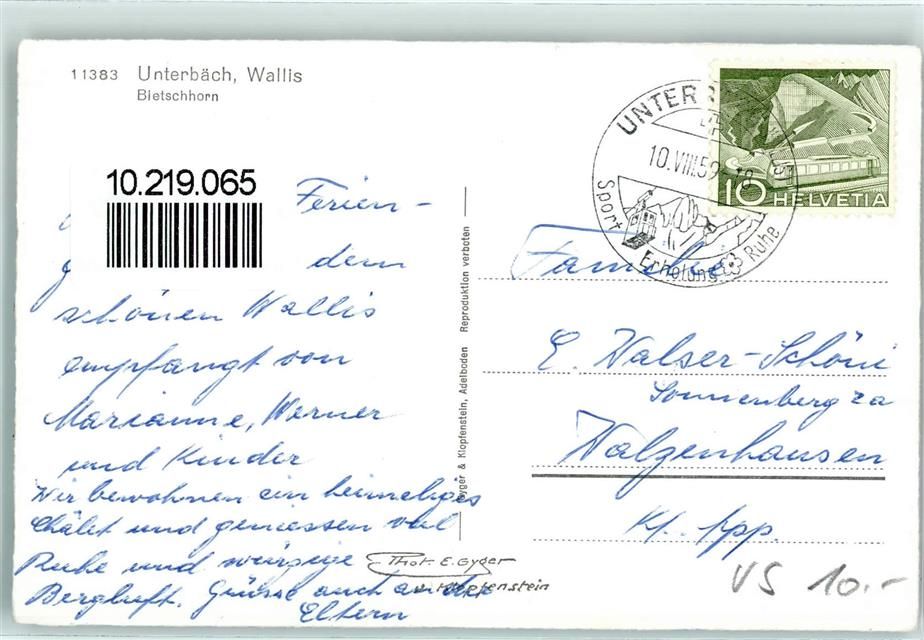 11383 Unterbäch, Wallis
Bietschhorn
10.219.065
Ferien-
dem
schönen Wallis
empfangt von
Marianne, Werner
und Kinder
Wir bewohnen ein heimeliges
Châlet und geniessen viel
Ruhe und würzige
Bergluft. Grüsse auch an die
Eltern
Phot. E. Gyger
Klopfenstein
Gyger & Klopfenstein, Adelboden Reproduktion verboten
UNTER
10.VIII.59-18
Sport Erholung Ruhe
10 HELVETIA
Familie
E. Walser-Schöni
Sonnenberg
Walzenhausen
Kt. App.
VS 10.-